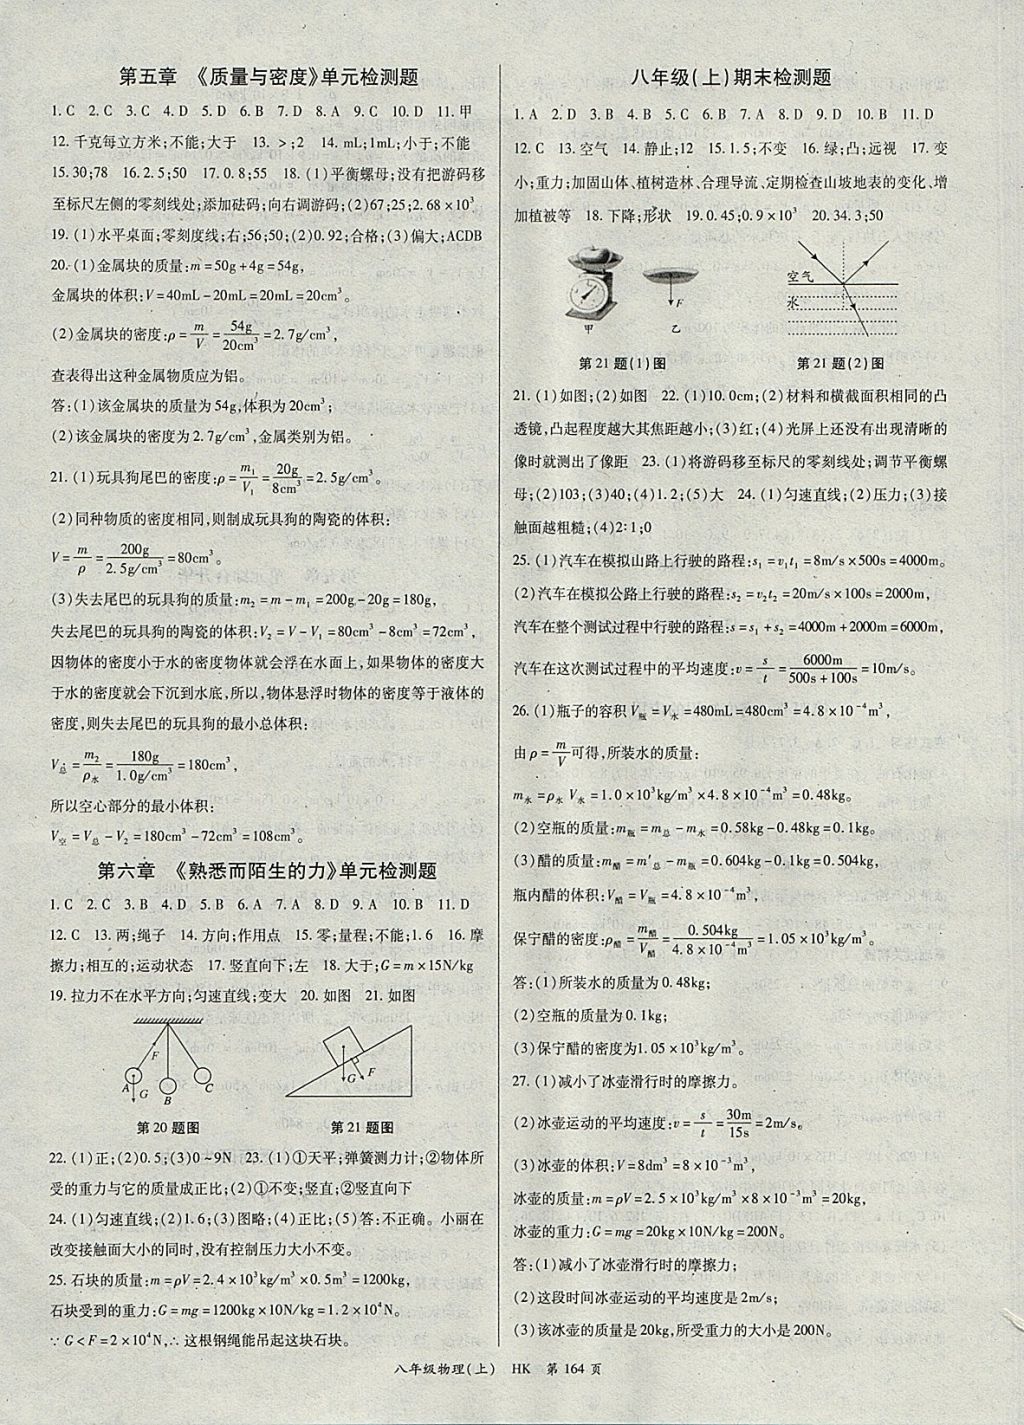 第五章 《质量与密度》单元检测题
1.C 2.C 3.C 4.D 5.D 6.B 7.D 8.A 9.C 10.D 11.甲
12.千克每立方米;不能;大于 13.>;2 14.mL;1mL;小于;不能
15.30;78 16.2.5;50 17.0.8;55 18.(1)平衡螺母;没有把游码移
至标尺左侧的零刻线处;添加砝码;向右调游码;(2)67;25;2.68×10³
19.(1)水平桌面;零刻度线;右;56;50;(2)0.92;合格;(3)偏大;ACDB
20.(1)金属块的质量:m=50g+4g=54g,
金属块的体积:V=40mL-20mL=20mL=20cm³。
(2)金属块的密度:ρ=m/V=54g/20cm³=2.7g/cm³,
查表得出这种金属物质应为铝。
答:(1)该金属块的质量为54g,体积为20cm³;
(2)该金属块的密度为2.7g/cm³,金属类别为铝。
21.(1)玩具狗尾巴的密度:ρ=m₁/V₁=20g/8cm³=2.5g/cm³,
(2)同种物质的密度相同,则制成玩具狗的陶瓷的体积:
V=m/ρ=200g/2.5g/cm³=80cm³。
(3)失去尾巴的玩具狗的质量:m₂=m-m₁=200g-20g=180g,
失去尾巴的玩具狗的陶瓷的体积:V₂=V-V₁=80cm³-8cm³=72cm³,
因物体的密度小于水的密度物体就会浮在水面上,如果物体的密度大
于水的密度就会下沉到水底,所以,物体悬浮时物体的密度等于液体的
密度,则失去尾巴的玩具狗的最小总体积:
V总=m₂/ρ水=180g/1.0g/cm³=180cm³,
所以空心部分的最小体积:
V空=V总-V₂=180cm³-72cm³=108cm³。
第六章 《熟悉而陌生的力》单元检测题
1.C 2.C 3.B 4.D 5.B 6.A 7.A 8.D 9.A 10.B 11.D
12.C 13.两;绳子 14.方向;作用点 15.零;量程;不能;1.6 16.摩
擦力;相互的;运动状态 17.竖直向下;左 18.大于;G=m×15N/kg
19.拉力不在水平方向;匀速直线;变大 20.如图 21.如图
F
A
G
B
C
G
F
第20题图 第21题图
22.(1)正;(2)0.5;(3)0~9N 23.(1)①天平;弹簧测力计;②物体所
受的重力与它的质量成正比;(2)①不变;竖直;②竖直向下
24.(1)匀速直线;(2)1.6;(3)图略;(4)正比;(5)答:不正确。小丽在
改变接触面大小的同时,没有控制压力大小不变。
25.石块的质量:m=ρV=2.4×10³kg/m³×0.5m³=1200kg,
石块受到的重力:G=mg=1200kg×10N/kg=1.2×10⁴N。
∵G<F=2×10⁴N,∴这根钢绳能吊起这块石块。
八年级(上)期末检测题
1.A 2.D 3.B 4.B 5.C 6.B 7.A 8.D 9.D 10.B 11.D
12.C 13.空气 14.静止;12 15.1.5;不变 16.绿;凸;远视 17.变
小;重力;加固山体、植树造林、合理导流、定期检查山坡地表的变化、增
加植被等 18.下降;形状 19.0.45;0.9×10³ 20.34.3;50
甲
F
乙
空气
水
第21题(1)图 第21题(2)图
21.(1)如图;(2)如图 22.(1)10.0cm;(2)材料和横截面积相同的凸
透镜,凸起程度越大其焦距越小;(3)红;(4)光屏上还没有出现清晰的
像时就测出了像距 23.(1)将游码移至标尺的零刻线处;调节平衡螺
母;(2)103;(3)40;(4)1.2;(5)大 24.(1)匀速直线;(2)压力;(3)接
触面越粗糙;(4)2∶1;0
25.(1)汽车在模拟山路上行驶的路程:s₁=v₁t₁=8m/s×500s=4000m。
(2)汽车在模拟公路上行驶的路程:s₂=v₂t₂=20m/s×100s=2000m,
汽车在整个测试过程中行驶的路程:s=s₁+s₂=4000m+2000m=6000m,
汽车在这次测试过程中的平均速度:v=s/t=6000m/500s+100s=10m/s。
26.(1)瓶子的容积V瓶=V水=480mL=480cm³=4.8×10⁻⁴m³,
由ρ=m/V可得,所装水的质量:
m水=ρ水V水=1.0×10³kg/m³×4.8×10⁻⁴m³=0.48kg。
(2)空瓶的质量:m瓶=m总-m水=0.58kg-0.48kg=0.1kg。
(3)醋的质量:m醋=m′总-m瓶=0.604kg-0.1kg=0.504kg,
瓶内醋的体积:V醋=V瓶=4.8×10⁻⁴m³,
保宁醋的密度:ρ醋=m醋/V醋=0.504kg/4.8×10⁻⁴m³=1.05×10³kg/m³。
答:(1)所装水的质量为0.48kg;
(2)空瓶的质量为0.1kg;
(3)保宁醋的密度为1.05×10³kg/m³。
27.(1)减小了冰壶滑行时的摩擦力。
(2)冰壶运动的平均速度:v=s/t=30m/15s=2m/s。
(3)冰壶的体积:V=8dm³=8×10⁻³m³,
冰壶的质量:m=ρV=2.5×10³kg/m³×8×10⁻³m³=20kg,
冰壶的重力:G=mg=20kg×10N/kg=200N。
答:(1)减小了冰壶滑行时的摩擦力;
(2)这段时间冰壶运动的平均速度是2m/s;
(3)该冰壶的质量是20kg,所受重力的大小是200N。
八年级物理(上) HK 第164页